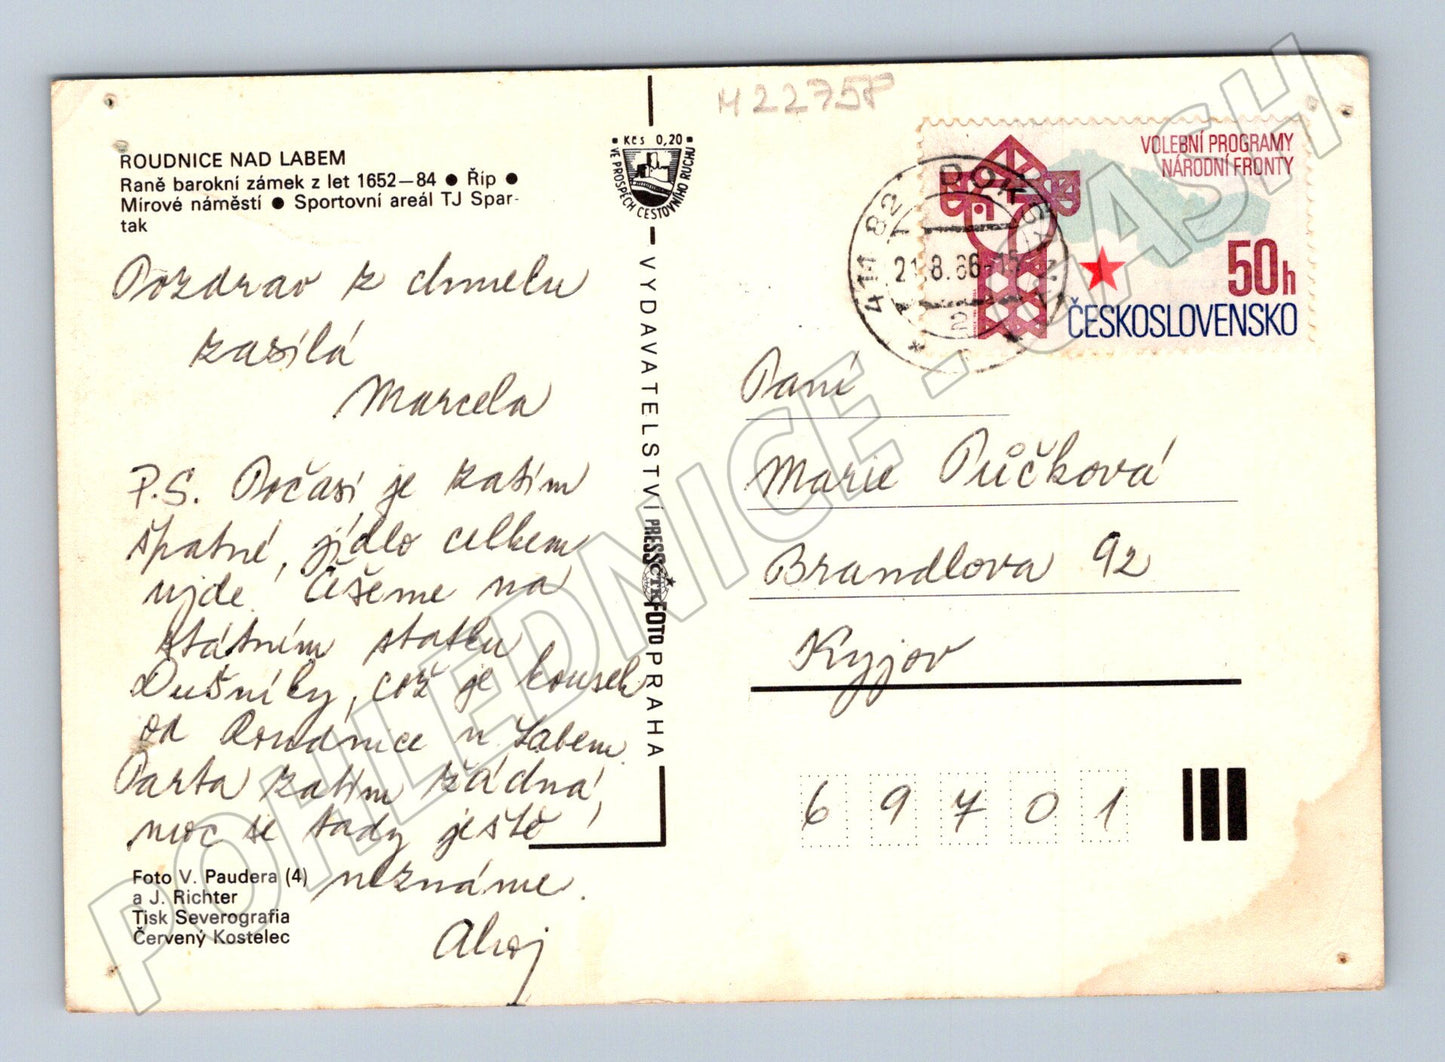 M 22758
ROUDNICE NAD LABEM
Raně barokní zámek z let 1652–84 ● Říp ●
Mírové náměstí ● Sportovní areál TJ Spar-
tak
Kčs 0,20
VE PROSPĚCH CESTOVNÍHO RUCHU
VYDAVATELSTVÍ PRESSFOTO PRAHA
ČTK
VOLEBNÍ PROGRAMY
NÁRODNÍ FRONTY
50h
ČESKOSLOVENSKO
411 82 DOKSANY
21.8.86-15
2
Pozdrav z chmelu
zasílá
Marcela
P.S. Počasí je zatím
špatné, jídlo celkem
ujde. Češeme na
státním statku
Dušníky, což je kousek
od Roudnice n. Labem.
Parta zatím žádná,
moc se tady ještě
neznáme.
Ahoj
Foto V. Paudera (4)
a J. Richter
Tisk Severografia
Červený Kostelec
Paní
Marie Půčková
Brandlova 92
Kyjov
69701
POHLEDNICE.CASH